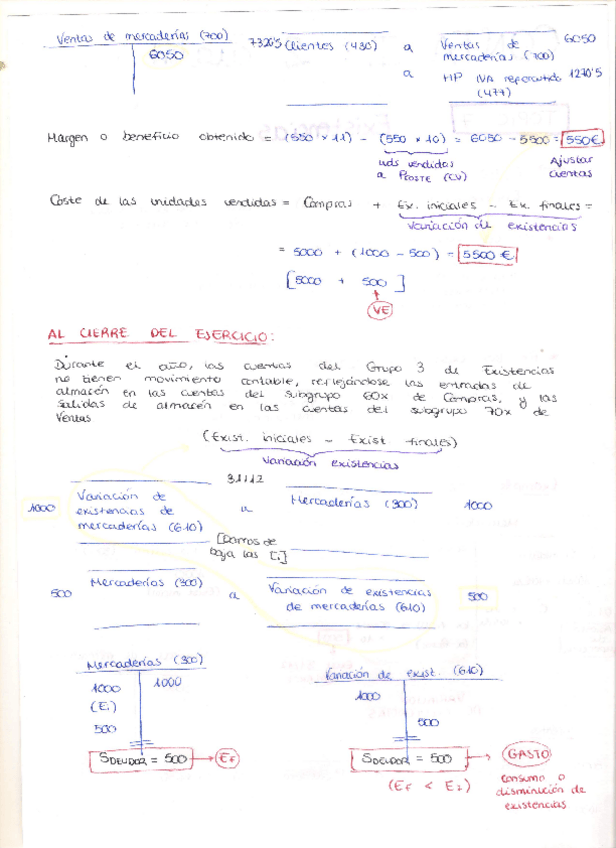 Ventas de mercaderías (700)
6050
7320'5 Clientes (430) a Ventas de mercaderías (700) 6050
a HP IVA repercutido (477) 1270'5
Margen o beneficio obtenido = (550 x 11) - (550 x 10) = 6050 - 5500 = 550€
uds vendidas a PCOSTE (CV)
Ajustar cuentas
Coste de las unidades vendidas = Compras + Ex. iniciales - Ex. finales =
Variación de existencias
= 5000 + (1000 - 500) = 5500 €
[5000 + 500]
VE
AL CIERRE DEL EJERCICIO:
Durante el año, las cuentas del Grupo 3 de Existencias
no tienen movimiento contable, reflejándose las entradas de
almacén en las cuentas del subgrupo 60x de Compras, y las
salidas de almacén en las cuentas del subgrupo 70x de
Ventas
(Exist. iniciales - Exist finales)
Variación existencias
31/12
1000 Variación de existencias de mercaderías (610) a Mercaderías (300) 1000
[Damos de
baja las E.]
500 Mercaderías (300) a Variación de existencias de mercaderías (610) 500
Mercaderías (300)
1000 1000
(Ei)
500
SDEUDOR = 500 → EF
Variación de exist. (610)
1000
500
SDEUDOR = 500 → GASTO
(EF < EI)
consumo o
disminución de
existencias